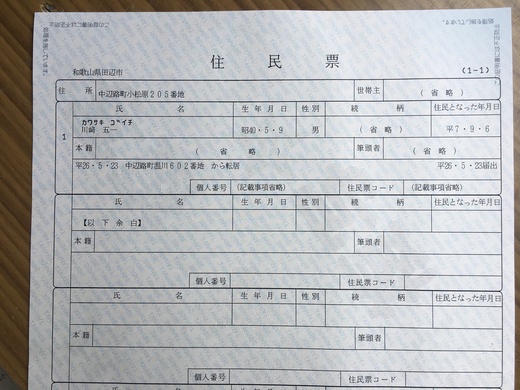 住民票
和歌山県田辺市
(1-1)
住所 中辺路町小松原205番地 世帯主 (省略)
氏名 生年月日 性別 続柄 住民となった年月日
1
カワサキ ゴイチ
川崎 五一 昭40・5・9 男 (省略) 平7・9・6
本籍 (省略) 筆頭者 (省略)
平26・5・23 中辺路町温川602番地 から転居 平26・5・23届出
個人番号 (記載事項省略) 住民票コード (記載事項省略)
氏名 生年月日 性別 続柄 住民となった年月日
【以下余白】
本籍 筆頭者
個人番号 住民票コード
氏名 生年月日 性別 続柄 住民となった年月日
本籍 筆頭者
個人番号 住民票コード